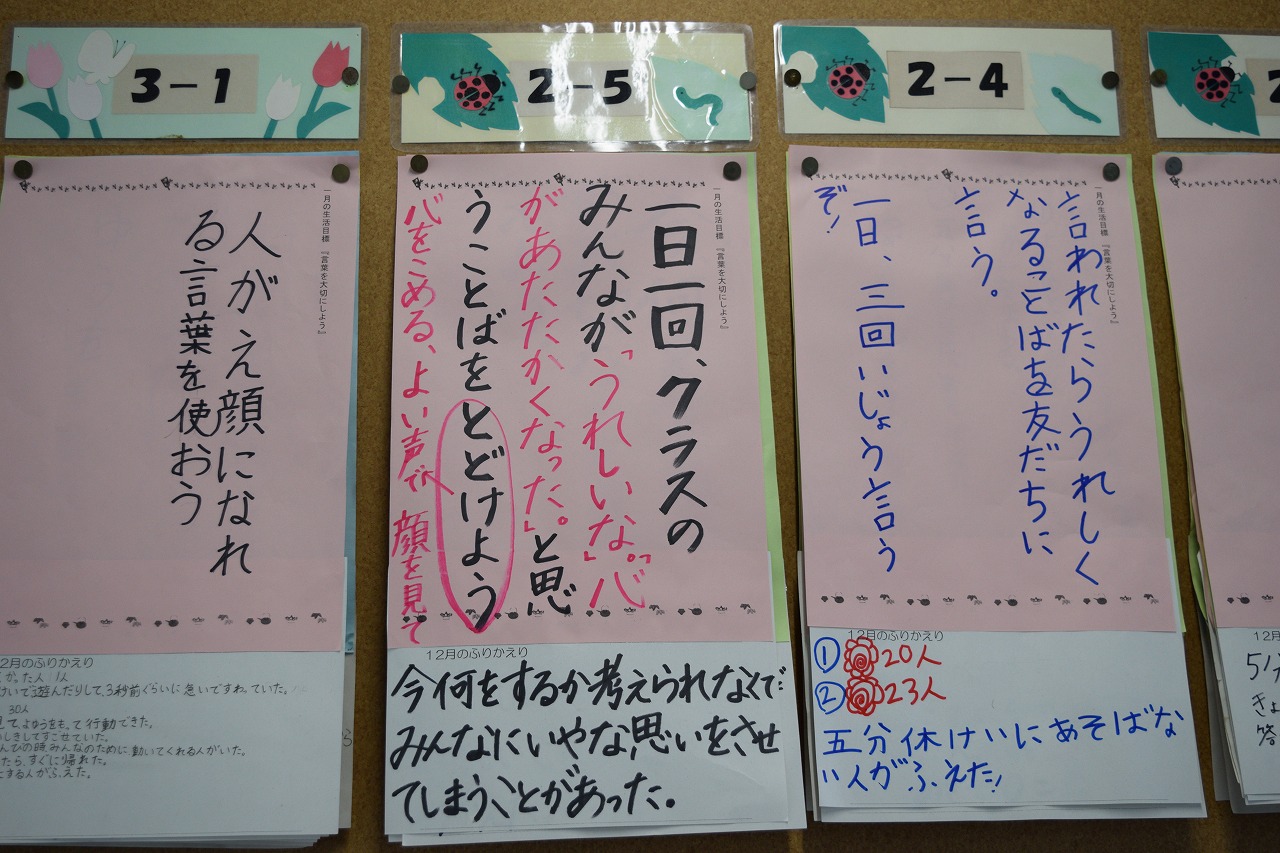 3-1
一月の生活目標 『言葉を大切にしよう』
人がえ顔になれ
る言葉を使おう
2月のふりかえり
かった人 1人
けいで遊んだりして、3秒前ぐらいに急いですわっていた。
30人
見て、よゆうをもって行動できた。
いしきしてすごせていた。
んびの時、みんなのために動いてくれる人がいた。
たら、すぐに帰れた。
とする人がふえた。
2-5
一月の生活目標 『言葉を大切にしよう』
一日一回、クラスの
みんなが「うれしいな。」「心
があたたかくなった。」と思
うことばをとどけよう
心をこめる、よい声で、顔を見て
12月のふりかえり
今何をするか考えられなくて
みんなにいやな思いをさせ
てしまうことがあった。
2-4
一月の生活目標 『言葉を大切にしよう』
言われたらうれしく
なることばを友だちに
言う。
一日、三回いじょう言う
ぞ!
12月のふりかえり
① 20人
② 23人
五分休けいにあそばな
い人がふえた!
2
12月
5分
きょ
答